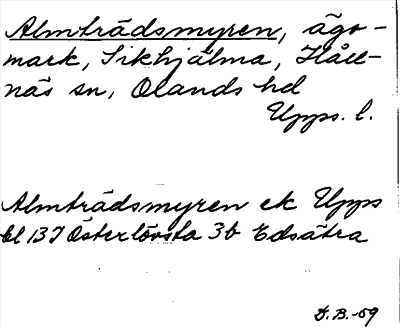 Almträdsmyren, ägo-
mark, Sikhjälma, Håll-
näs sn, Olands hd
Upps. l.
Almträdsmyren ek Upps
bl 13 I Österlövsta 3b Edsätra
D.B.-59